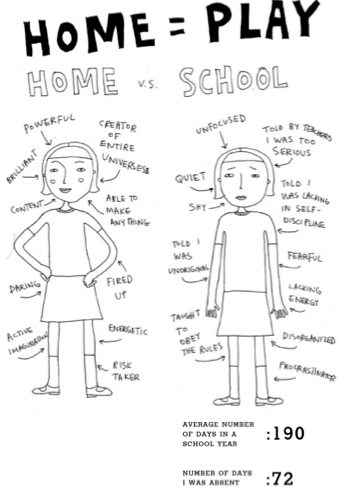 HOME = PLAY
HOME V.S. SCHOOL
POWERFUL
CREATOR
OF
ENTIRE
UNIVERSES
BRILLIANT
CONTENT
ABLE TO
MAKE
ANYTHING
DARING
FIRED
UP
ACTIVE
IMAGINATION
ENERGETIC
RISK
TAKER
UNFOCUSED
TOLD BY TEACHERS
I WAS TOO
SERIOUS
QUIET
SHY
TOLD I
WAS LACKING
IN SELF-
DISCIPLINE
TOLD I
WAS
UNORIGINAL
FEARFUL
LACKING
ENERGY
TAUGHT
TO
OBEY
THE RULES
DISORGANIZED
PROCRASTINATOR
AVERAGE NUMBER
OF DAYS IN A
SCHOOL YEAR
:190
NUMBER OF DAYS
I WAS ABSENT
:72